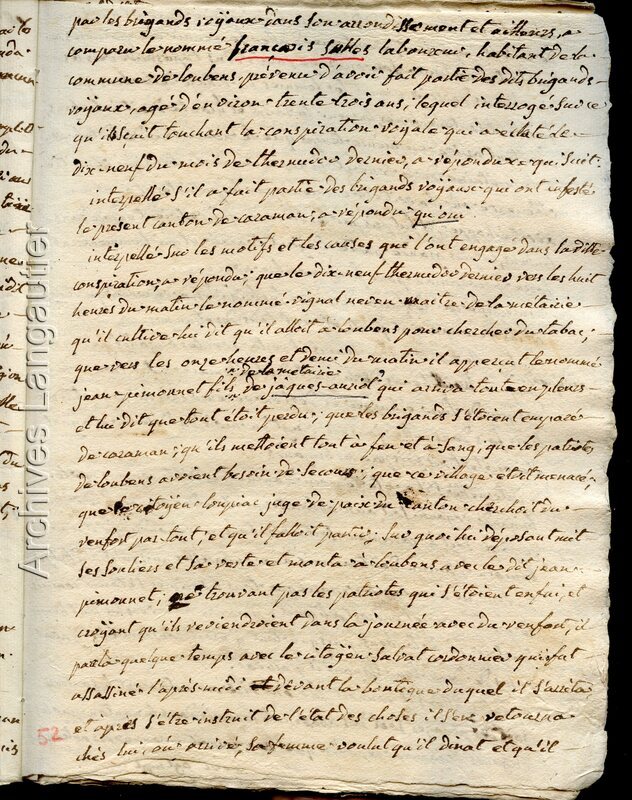 par les brigands royaux dans son arrondissement et ailleurs, a
comparu le nommé françois sables laboureur, habitant de la
commune de loubens, prévenu d'avoir fait partie des dits brigands
royaux, agé d'environ trente trois ans; lequel interrogé sur ce
qu'il scait touchant la conspiration royale qui a éclaté le
dix-neuf du mois de thermidor dernier, a répondu ce qui suit:
interpellé s'il a fait partie des brigands royaux qui ont infesté
le présent canton de caraman; a répondu qu'oui
interpellé sur les motifs et les causes que l'ont engagé dans la ditte
conspiration a répondu; que le dix-neuf thermidor dernier vers les huit
heures du matin le nommé vignal neveu maitre de la métairie
qu'il cultive lui dit qu'il alloit à loubens pour chercher du tabac;
que vers les onze heures et demi du matin il apperçut le nommé
de la métairie
jean pimonnet fils de jaques-auriol qui arriva tout en pleurs
et lui dit que tout étoit perdu; que les brigands s'étoient emparé
de caraman; qu'ils mettoient tout à feu et à sang; que les patriotes
de loubens avoient besoin de secours; que ce village etoit menacé;
que le citoyen loupiac juge de paix du canton cherchoit du
renfort par tout; et qu'il falloit partir; sur quoi lui déposant mit
ses souliers et sa veste et monta à loubens avec le dit jean
pimonnet; ne trouvant pas les patriotes qui s'étoient enfui, et
croyant qu'ils reviendroient dans la journée avec du renfort, il
parla quelque temps avec le citoyen salvat cordonnier qui fut
assassiné l'après-midi devant la boutique duquel il s'arrêta
et après s'être instruit de l'état des choses il s'en retourna
chés lui; où arrivé, sa femme voulut qu'il dinat et qu'il
52
Archives Langautier